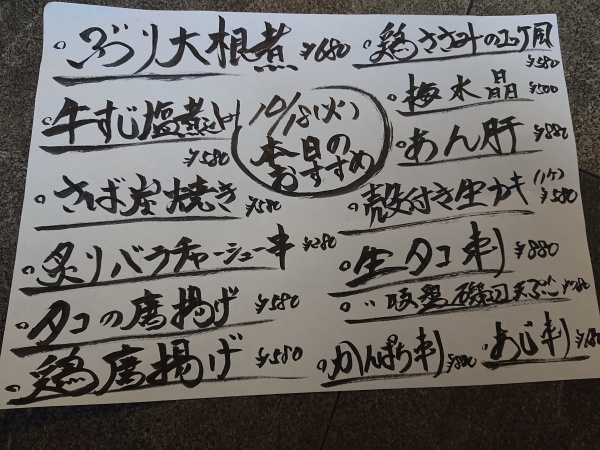 ぶり大根煮 ¥680
牛すじ塩煮込み ¥580
さば炭焼き ¥580
炙りバラチャーシュー串 ¥280
タコの唐揚げ ¥580
鶏唐揚げ ¥580
10/18(火)
本日の
おすすめ
鶏ささみのユッケ風 ¥580
梅水晶 ¥500
あん肝 ¥880
殻付き生カキ(1ケ) ¥580
生タコ刺 ¥880
〃吸盤磯辺天ぷら
かんぱち刺
あじ刺